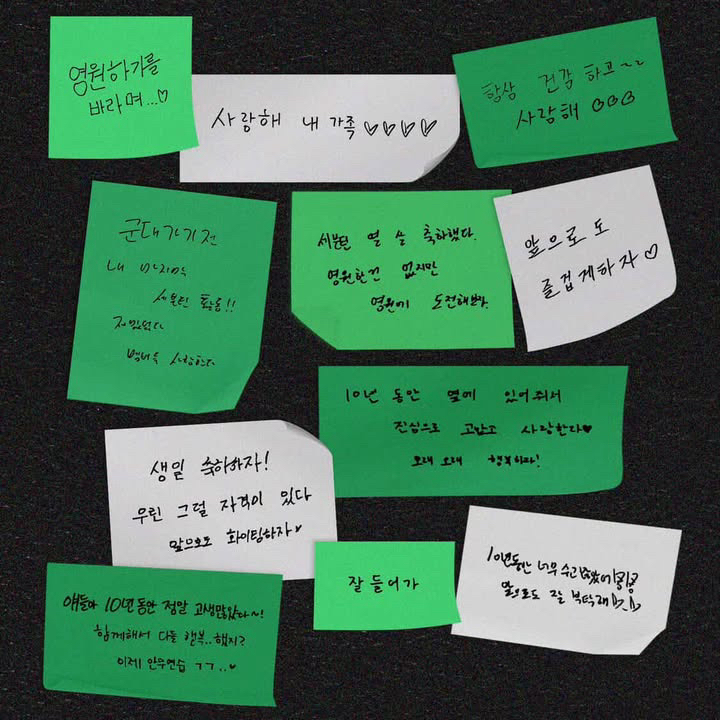 영원하기를
바라며...♡
사랑해 내 가족 ♡♡♡♡
항상 건강 하고~~
사랑해 ♡♡♡
군대가기전
내 마지막
세븐틴 활동!!
재밌었다
멤버들 사랑한다
세븐틴 열 살 축하했다.
영원한건 없지만
영원에 도전해보자.
앞으로도
즐겁게하자♡
10년 동안 옆에 있어줘서
진심으로 고맙고 사랑한다♥
오래 오래 행복하자!
생일 축하하자!
우린 그럴 자격이 있다
앞으로도 화이팅하자♥
잘 들어가
10년동안 너무 수고많았어
앞으로도 잘 부탁해
얘들아 10년 동안 정말 고생많았다~!
함께해서 다들 행복..했지?
이제 안무연습 ㄱㄱ..♥